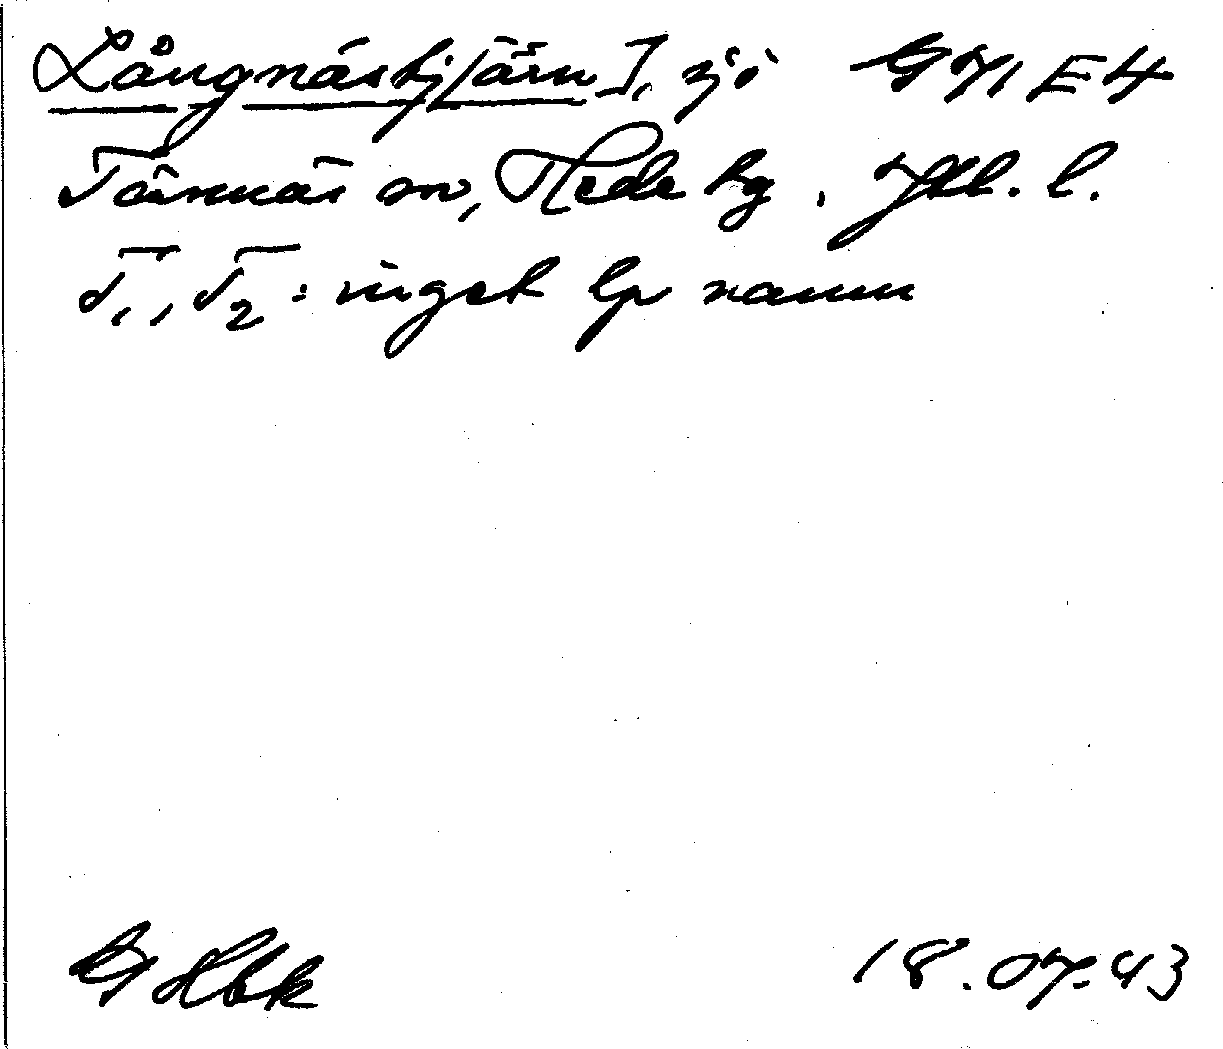 Långnästjärn I, sjö G 71 E4
Tännäs sn, Hede hg. Jtl. l.
T1, T2: inget lp namn
G Hbk
18.07.43